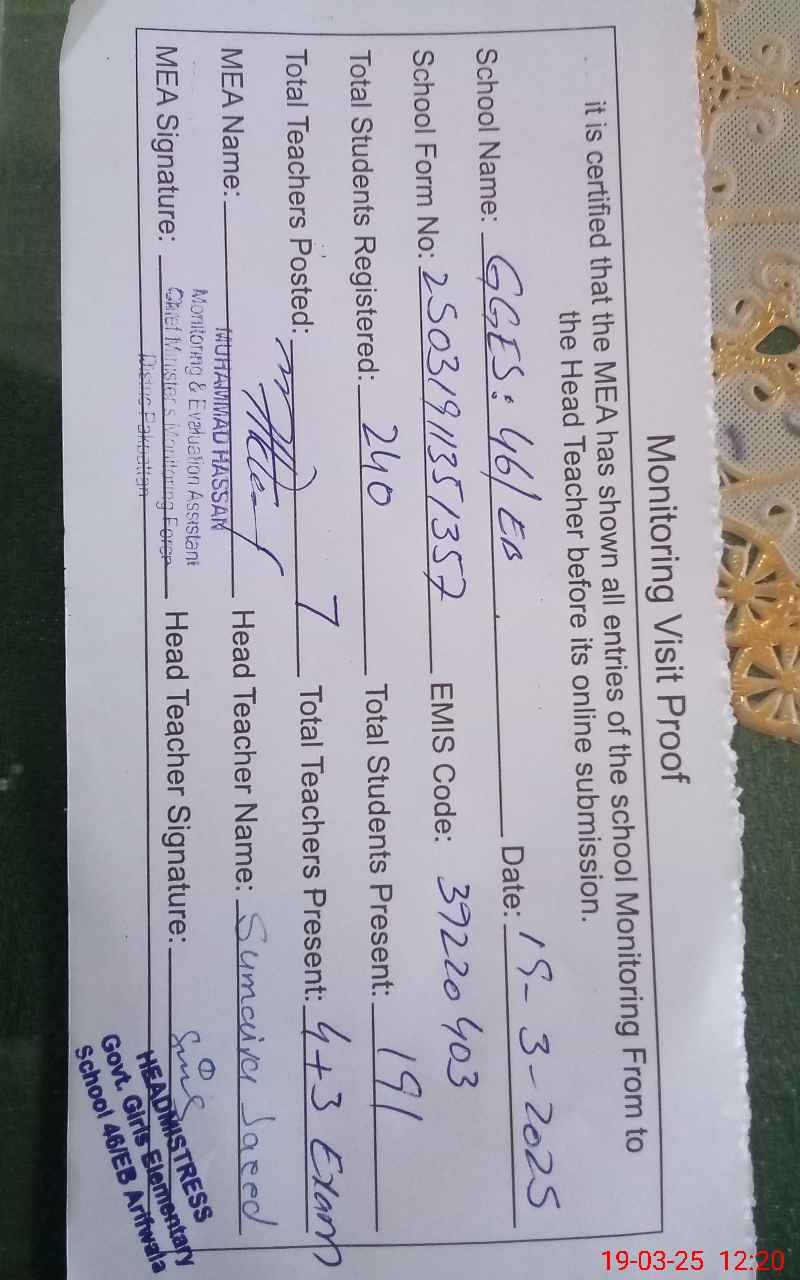 Monitoring Visit Proof
it is certified that the MEA has shown all entries of the school Monitoring From to
the Head Teacher before its online submission.
School Name: GGES: 46/EB Date: 19-3-2025
School Form No: 2503191351357 EMIS Code: 39220403
Total Students Registered: 240 Total Students Present: 191
Total Teachers Posted: 7 Total Teachers Present: 4+3 Exam
MEA Name: MUHAMMAD HASSAN Head Teacher Name: Sumaira Saeed
Monitoring & Evaluation Assistant
MEA Signature: Chief Minister's Monitoring Force Head Teacher Signature:
District Pakpattan
HEADMISTRESS
Govt. Girls Elementary
School 46/EB Arifwala
19-03-25 12:20